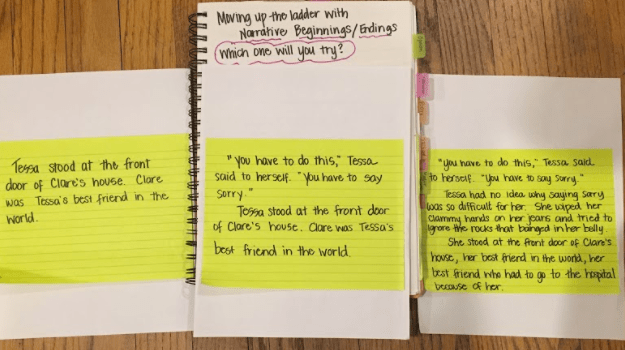 Moving up the ladder with
Narrative Beginnings/Endings
Which one will you try?
Tessa stood at the front
door of Clare's house. Clare
was Tessa's best friend in the
world.
"You have to do this," Tessa
said to herself. "You have to say
sorry."
Tessa stood at the front door
of Clare's house. Clare was Tessa's
best friend in the world.
"You have to do this," Tessa said
to herself. "You have to say sorry."
Tessa had no idea why saying sorry
was so difficult for her. She wiped her
clammy hands on her jeans and tried to
ignore the rocks that banged in her belly.
She stood at the front door of Clare's
house, her best friend in the world, her
best friend who had to go to the hospital
because of her.